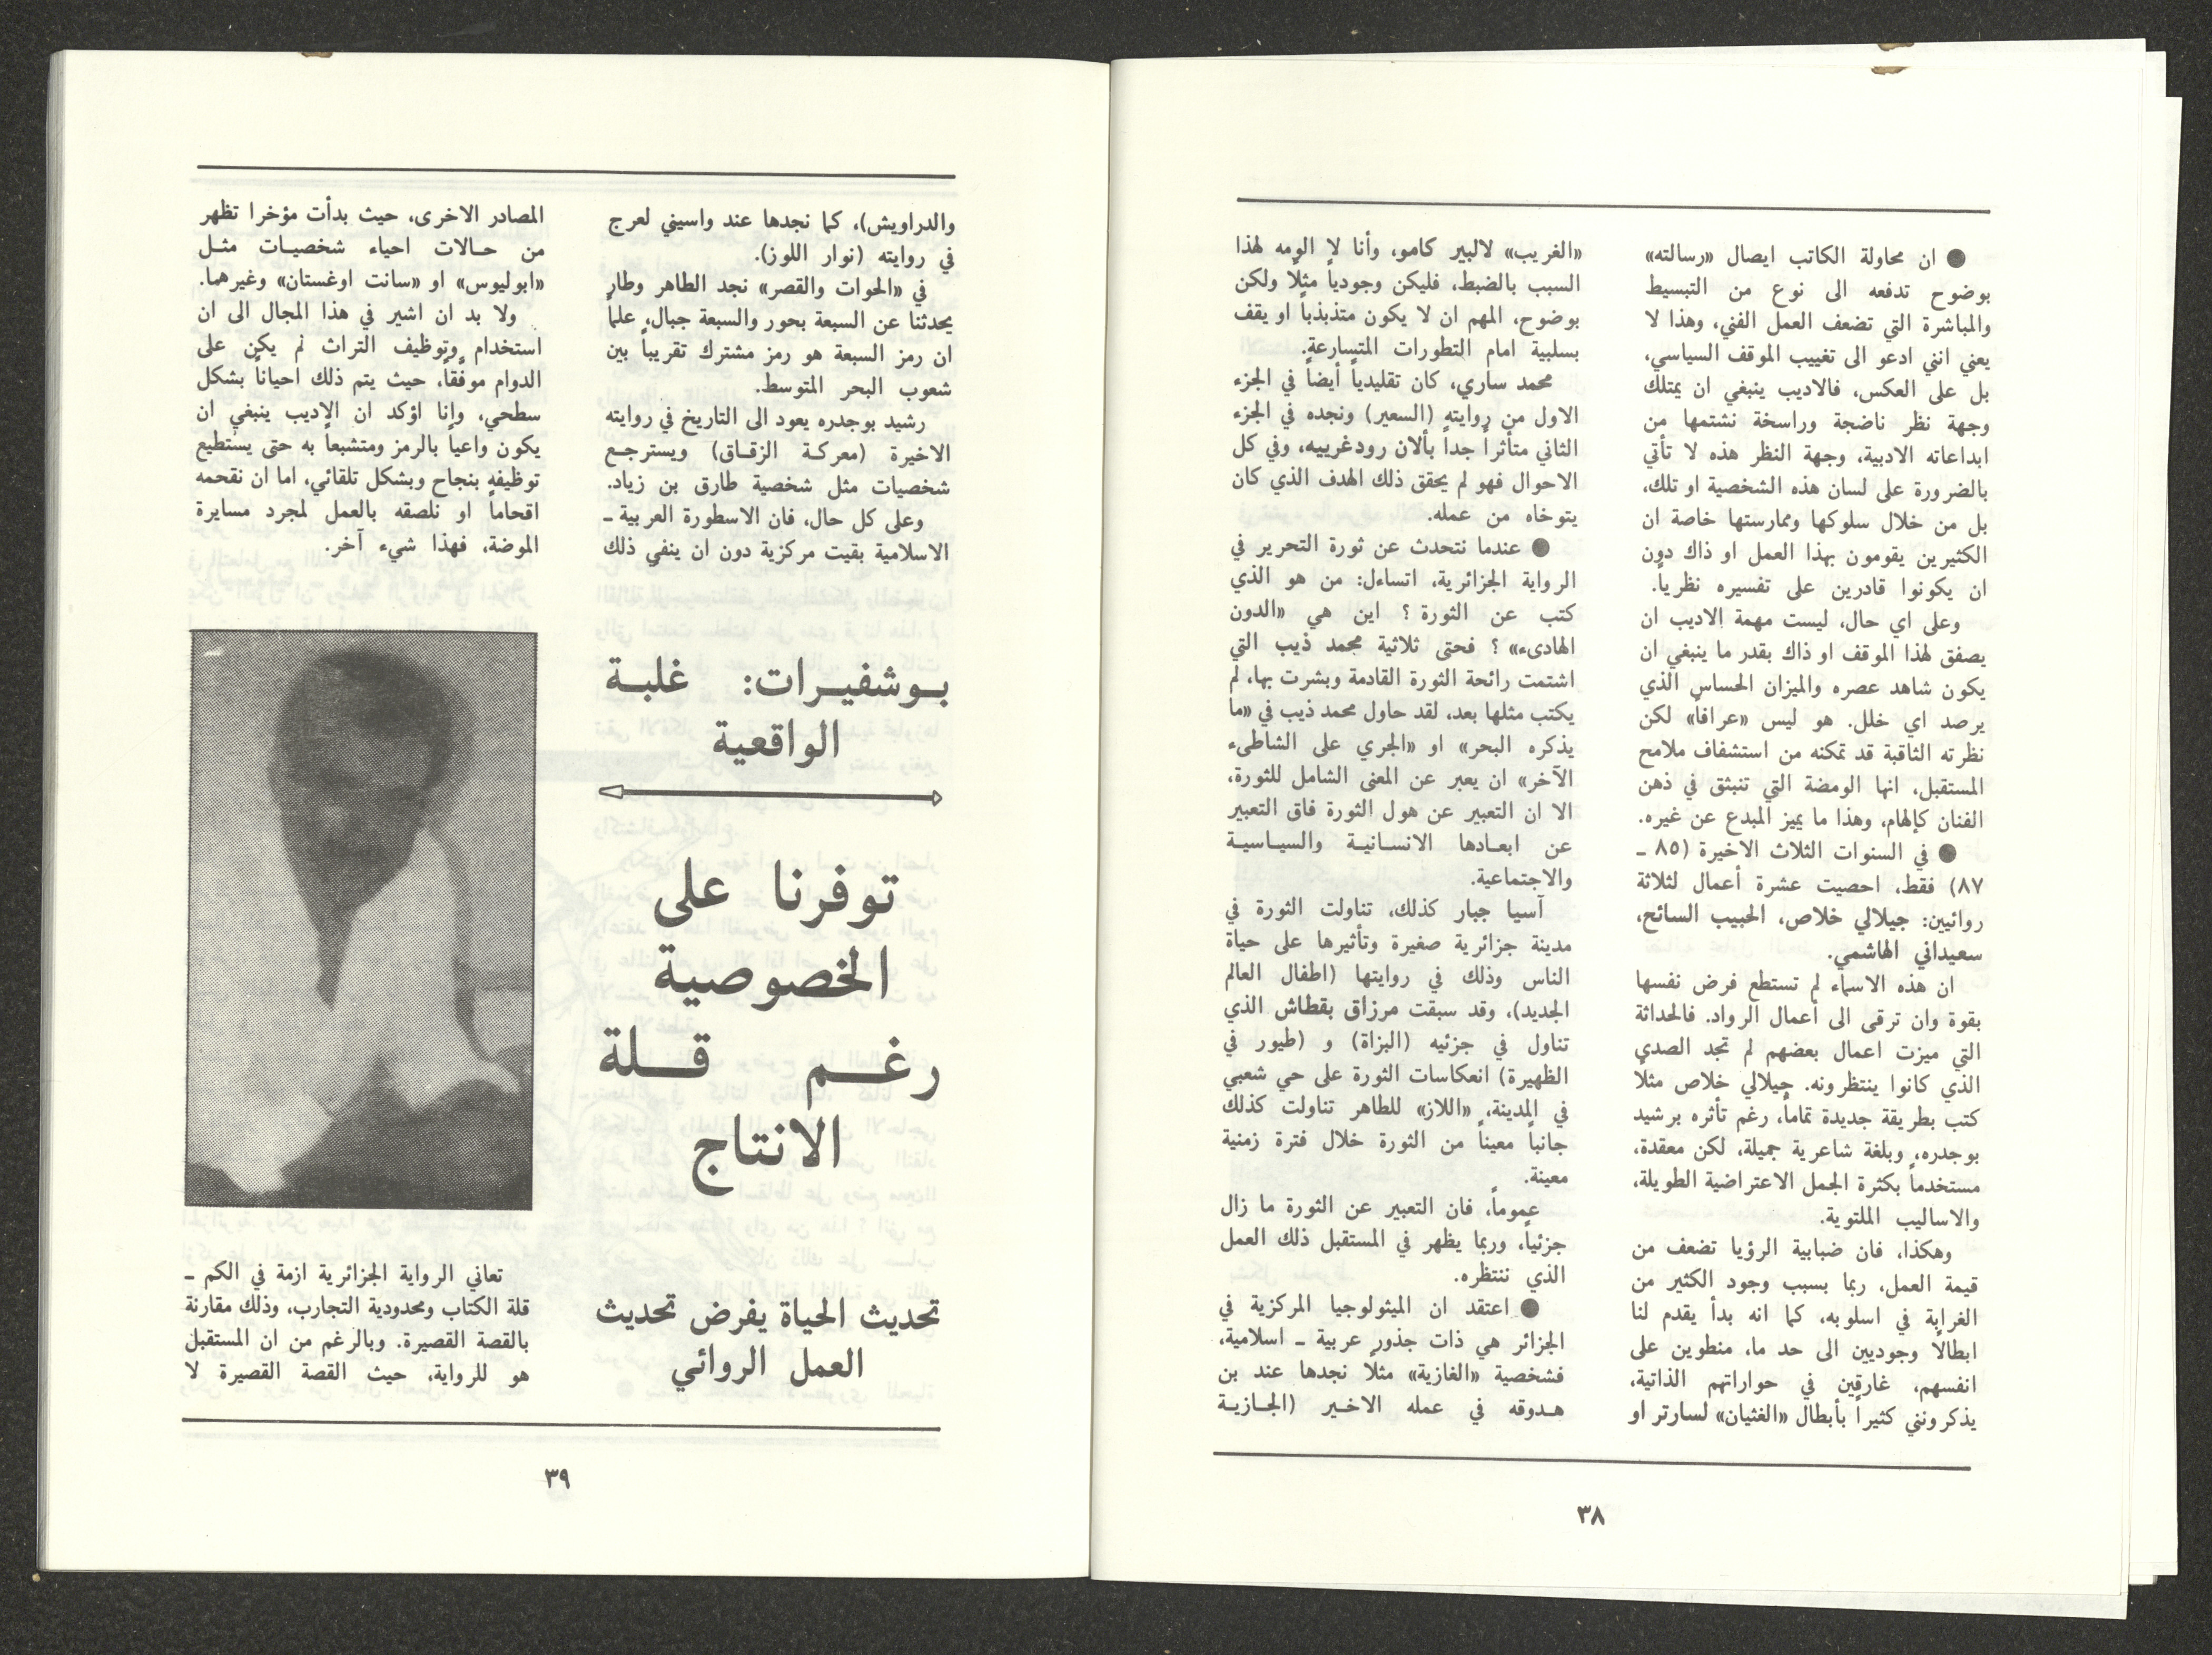 ● ان محاولة الكاتب ايصال «رسالته»
بوضوح تدفعه الى نوع من التبسيط
والمباشرة التي تضعف العمل الفني، وهذا لا
يعني انني ادعو الى تغييب الموقف السياسي،
بل على العكس، فالاديب ينبغي ان يمتلك
وجهة نظر ناضجة وراسخة نشتمها من
ابداعاته الادبية، وجهة النظر هذه لا تأتي
بالضرورة على لسان هذه الشخصية او تلك،
بل من خلال سلوكها وممارستها خاصة ان
الكثيرين يقومون بهذا العمل او ذاك دون
ان يكونوا قادرين على تفسيره نظرياً.
وعلى اي حال، ليست مهمة الاديب ان
يصفق لهذا الموقف او ذاك بقدر ما ينبغي ان
يكون شاهد عصره والميزان الحساس الذي
يرصد اي خلل. هو ليس «عرافاً» لكن
نظرته الثاقبة قد تمكنه من استشفاف ملامح
المستقبل، انها الومضة التي تنبثق في ذهن
الفنان كإلهام، وهذا ما يميز المبدع عن غيره.
● في السنوات الثلاث الاخيرة (٨٥ ـ
٨٧) فقط، احصيت عشرة أعمال لثلاثة
روائيين: جيلالي خلاص، الحبيب السائح،
سعيداني الهاشمي.
ان هذه الاسماء لم تستطع فرض نفسها
بقوة وان ترقى الى أعمال الرواد. فالحداثة
التي ميزت اعمال بعضهم لم تجد الصدى
الذي كانوا ينتظرونه. جيلالي خلاص مثلاً
كتب بطريقة جديدة تماماً، رغم تأثره برشيد
بوجدره، وبلغة شاعرية جميلة، لكن معقدة،
مستخدماً بكثرة الجمل الاعتراضية الطويلة،
والاساليب الملتوية.
وهكذا، فان ضبابية الرؤيا تضعف من
قيمة العمل، ربما بسبب وجود الكثير من
الغرابة في اسلوبه، كما انه بدأ يقدم لنا
ابطالاً وجوديين الى حد ما، منطوين على
انفسهم، غارقين في حواراتهم الذاتية،
يذكرونني كثيراً بأبطال «الغثيان» لسارتر او
«الغريب» لالبير كامو، وأنا لا الومه لهذا
السبب بالضبط، فليكن وجودياً مثلًا ولكن
بوضوح، المهم ان لا يكون متذبذباً او يقف
بسلبية امام التطورات المتسارعة.
محمد ساري، كان تقليدياً أيضاً في الجزء
الاول من روايته (السعير) ونجده في الجزء
الثاني متأثراً جداً بألان رودغرييه، وفي كل
الاحوال فهو لم يحقق ذلك الهدف الذي كان
يتوخاه من عمله.
● عندما نتحدث عن ثورة التحرير في
الرواية الجزائرية، اتساءل: من هو الذي
كتب عن الثورة ؟ اين هي «الدون
الهادىء» ؟ فحتى ثلاثية محمد ذيب التي
اشتمت رائحة الثورة القادمة وبشرت بها، لم
يكتب مثلها بعد، لقد حاول محمد ذيب في «ما
يذكره البحر» او «الجري على الشاطىء
الآخر» ان يعبر عن المعنى الشامل للثورة،
الا ان التعبير عن هول الثورة فاق التعبير
عن ابعادها الانسانية والسياسية
والاجتماعية.
آسيا جبار كذلك، تناولت الثورة في
مدينة جزائرية صغيرة وتأثيرها على حياة
الناس وذلك في روايتها (اطفال العالم
الجديد)، وقد سبقت مرزاق بقطاش الذي
تناول في جزئيه (البزاة) و (طيور في
الظهيرة) انعكاسات الثورة على حي شعبي
في المدينة، «اللاز» للطاهر تناولت كذلك
جانباً معيناً من الثورة خلال فترة زمنية
معينة.
عموماً، فان التعبير عن الثورة ما زال
جزئياً، وربما يظهر في المستقبل ذلك العمل
الذي ننتظره.
● اعتقد ان الميثولوجيا المركزية في
الجزائر هي ذات جذور عربية ـ اسلامية،
فشخصية «الغازية» مثلًا نجدها عند بن
هدوقه في عمله الاخير (الجازية
٣٨
والدراويش)، كما نجدها عند واسيني لعرج
في روايته (نوار اللوز).
في «الحوات والقصر» نجد الطاهر وطار
يحدثنا عن السبعة بحور والسبعة جبال، علماً
ان رمز السبعة هو رمز مشترك تقريباً بين
شعوب البحر المتوسط.
رشيد بوجدره يعود الى التاريخ في روايته
الاخيرة (معركة الزقاق) ويسترجع
شخصيات مثل شخصية طارق بن زياد.
وعلى كل حال، فان الاسطورة العربية ـ
الاسلامية بقيت مركزية دون ان ينفي ذلك
المصادر الاخرى، حيث بدأت مؤخرا تظهر
من حالات احياء شخصيات مثل
«ابوليوس» او «سانت اوغستان» وغيرهما.
ولا بد ان اشير في هذا المجال الى ان
استخدام وتوظيف التراث لم يكن على
الدوام موفّقاً، حيث يتم ذلك احياناً بشكل
سطحي، وانا اؤكد ان الاديب ينبغي ان
يكون واعياً بالرمز ومتشبعاً به حتى يستطيع
توظيفه بنجاح وبشكل تلقائي، اما ان نقحمه
اقحاماً او نلصقه بالعمل لمجرد مسايرة
الموضة، فهذا شيء آخر.
بوشفيرات: غلبة
الواقعية
توفرنا على
الخصوصية
رغم قلة
الانتاج
تحديث الحياة يفرض تحديث
العمل الروائي
تعاني الرواية الجزائرية ازمة في الكم ـ
قلة الكتاب ومحدودية التجارب، وذلك مقارنة
بالقصة القصيرة. وبالرغم من ان المستقبل
هو للرواية، حيث القصة القصيرة لا
٣٩